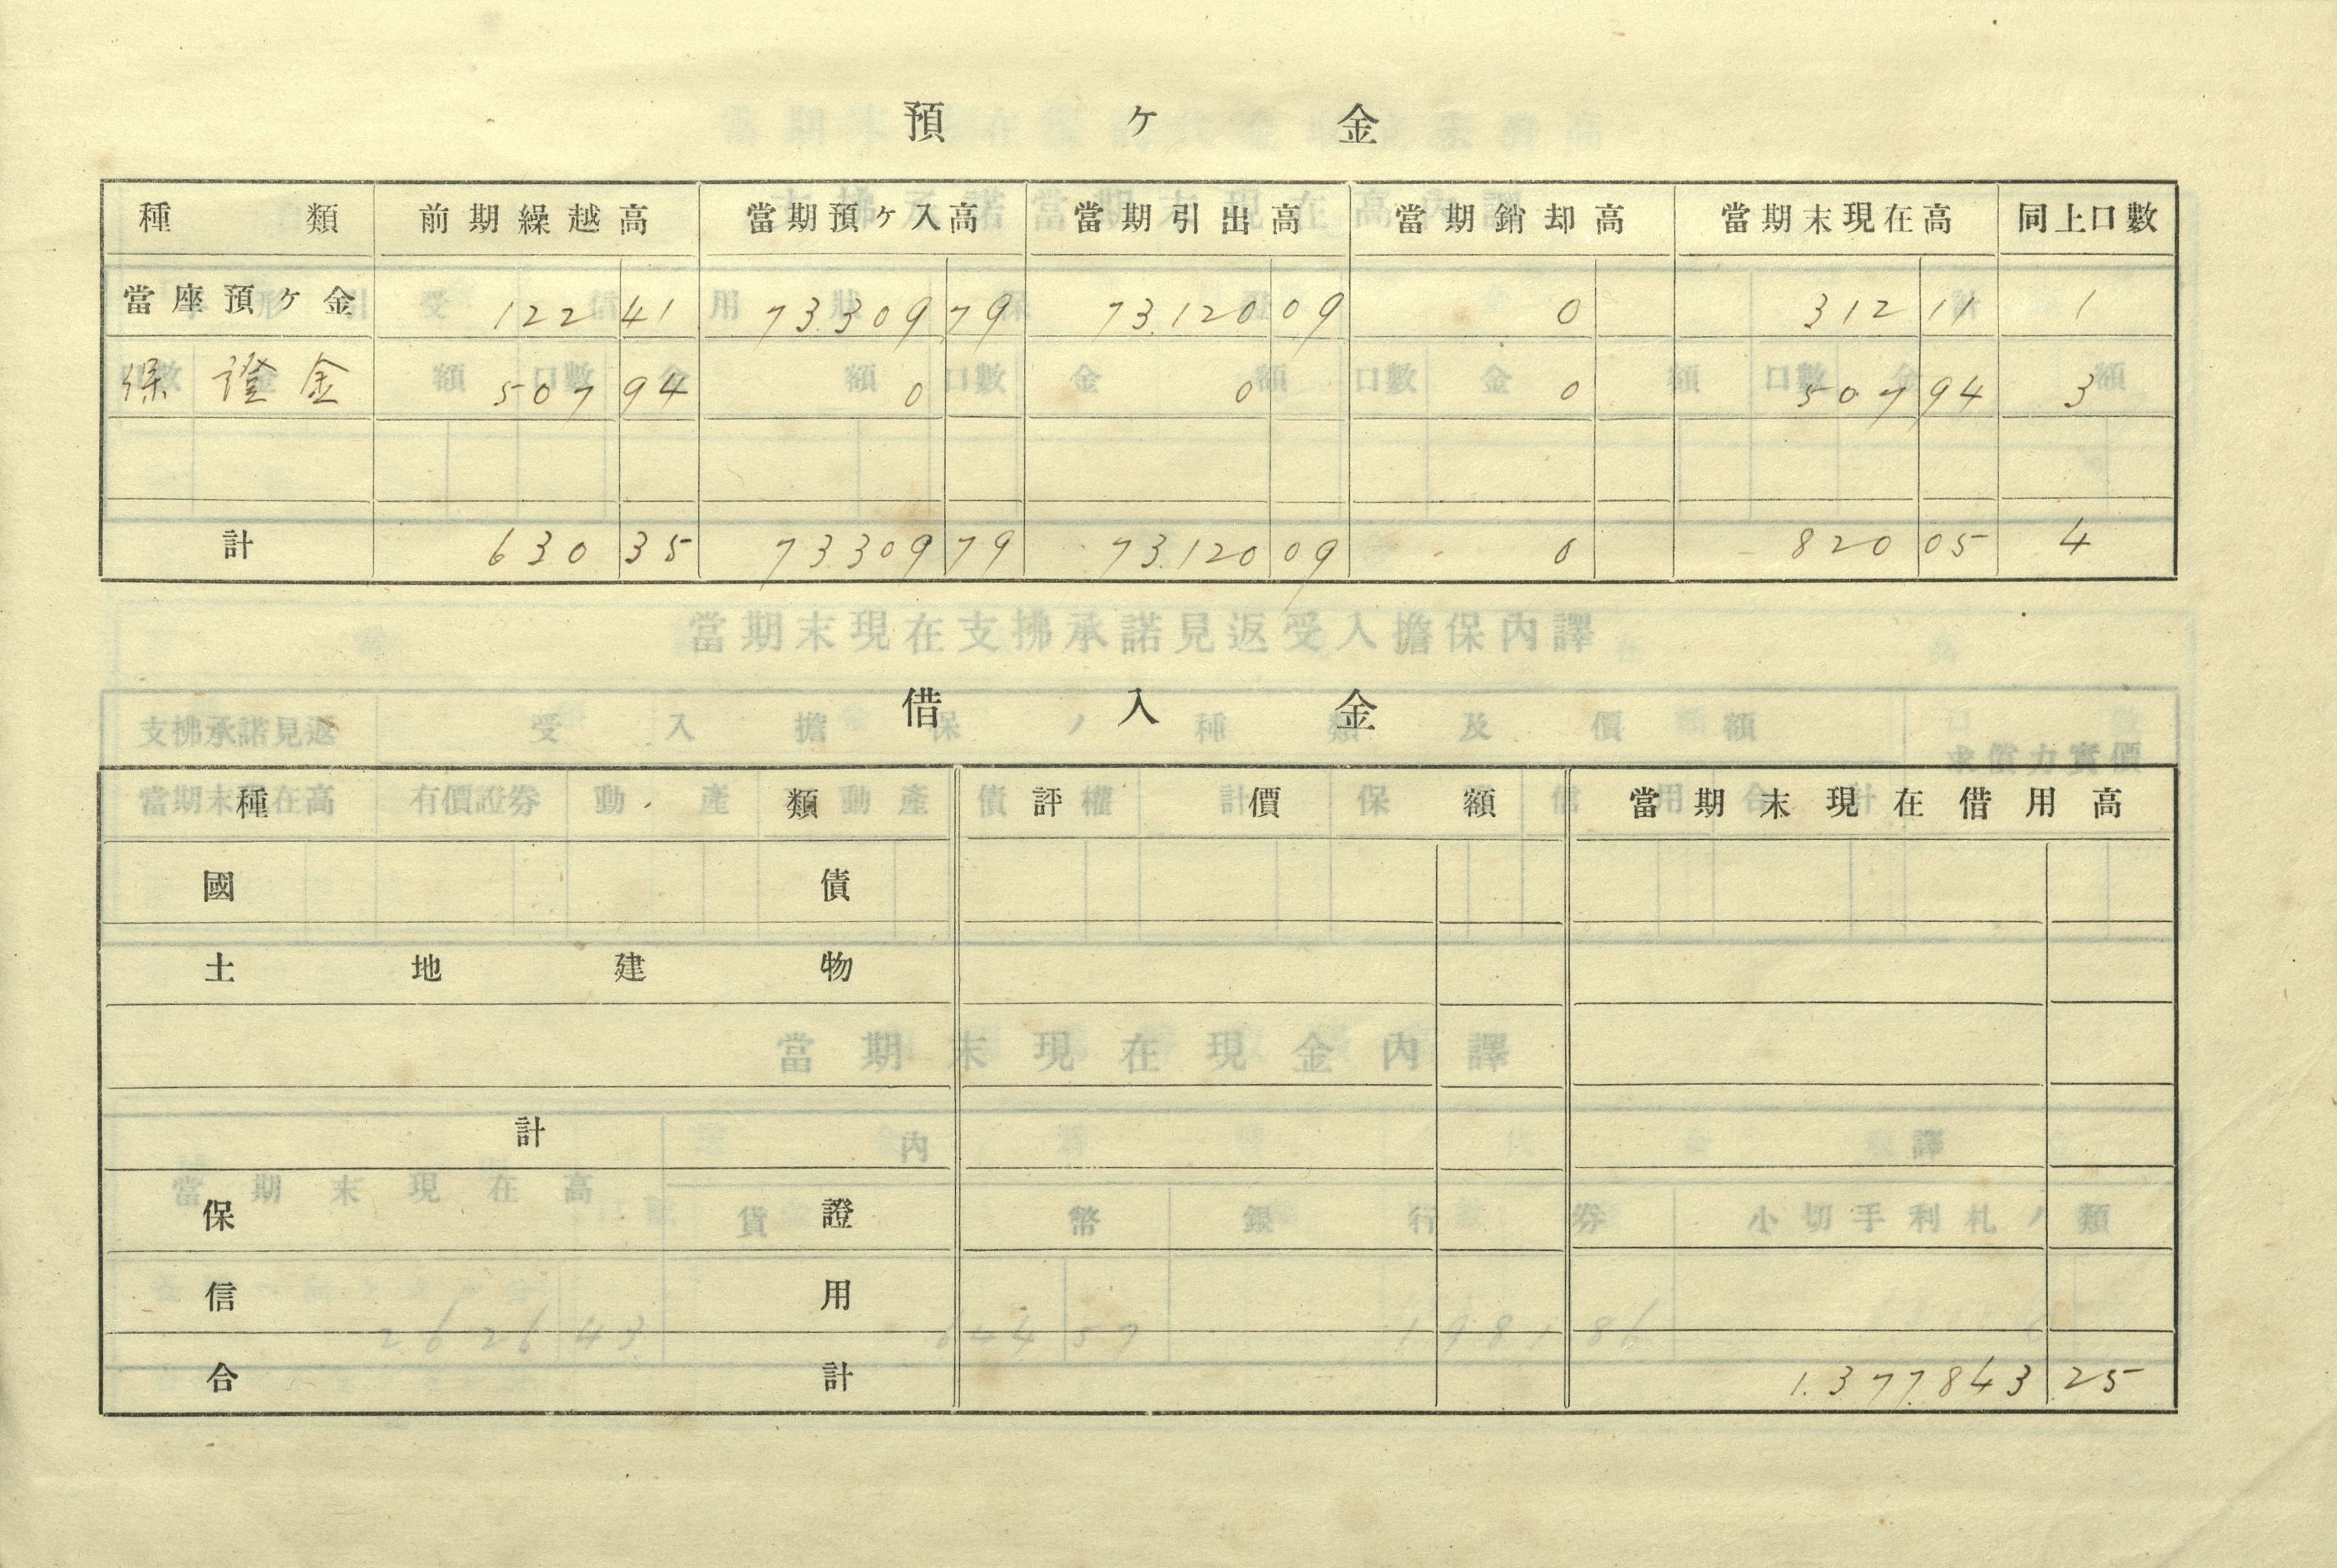 預ヶ金
種類 前期繰越高 當期預ヶ入高 當期引出高 當期銷却高 當期末現在高 同上口數
當座預ヶ金 122 41 73.309 79 73.120 09 0 312 11 1
保證金 507 94 0 0 0 507 94 3
計 630 35 73.309 79 73.120 09 0 820 05 4
借入金
種類 評價額 當期末現在借用高
國債
土地建物
計
保證
信用
合計 1.377.843 25